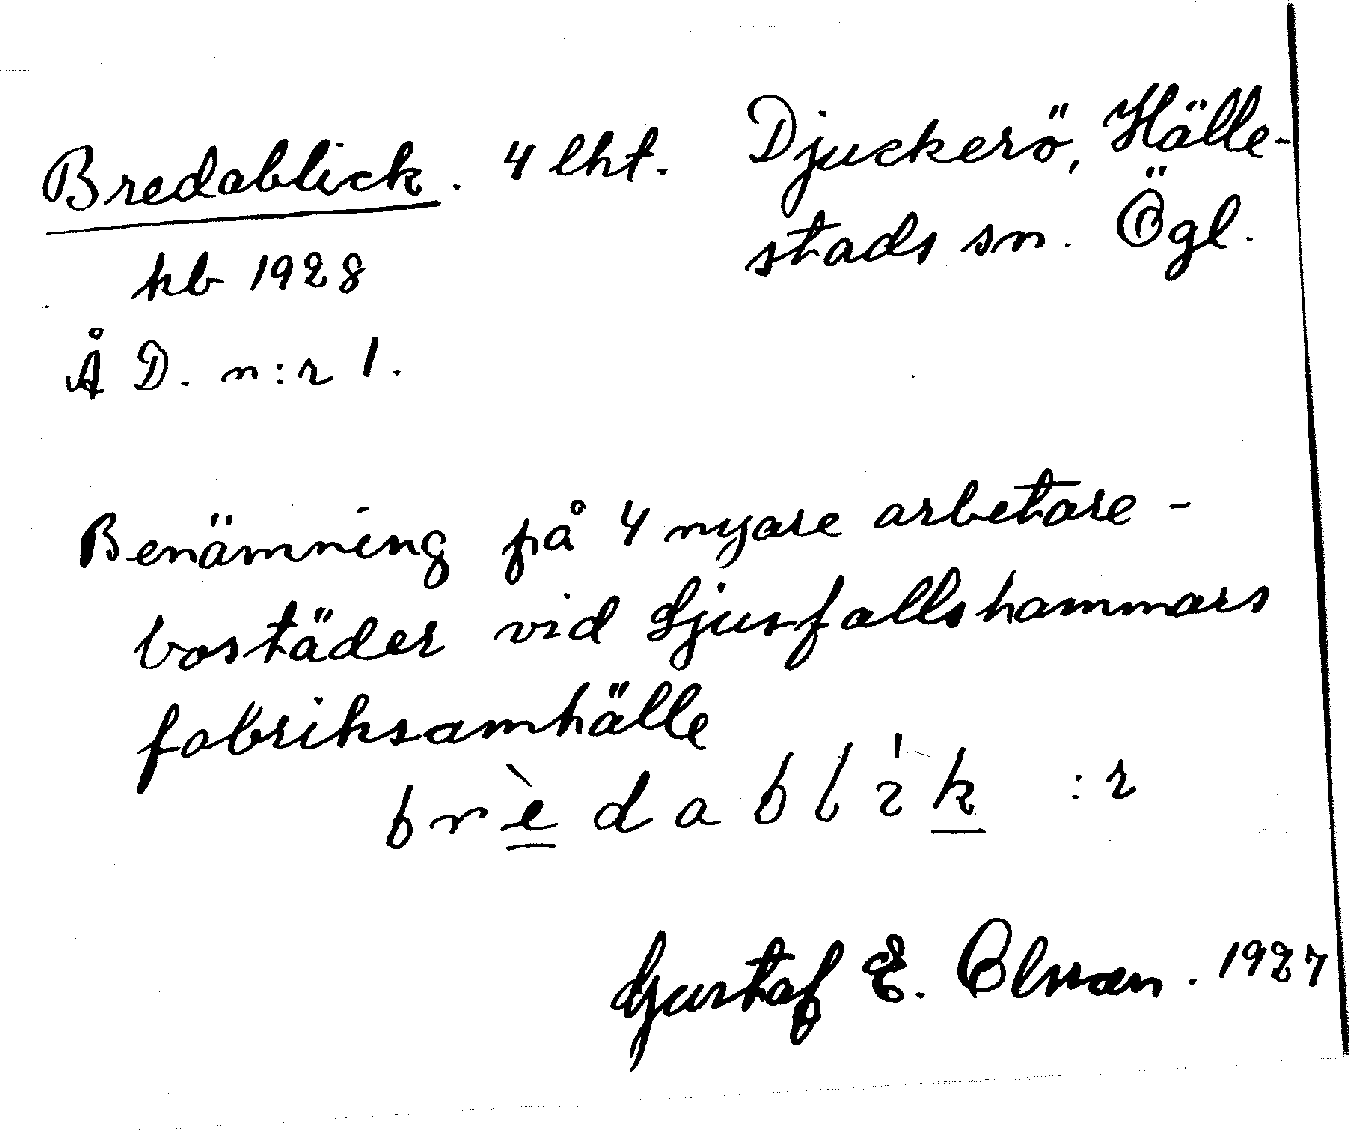 Bredablick. 4 lht. Djuckerö, Hälle-
stads sn. Ögl.
hb 1928
Å D. n:r 1.
Benämning på 4 nyare arbetare-
bostäder vid Ljusfallshammars
fabriksamhälle
brèdablik :r
Gustaf E. 1927